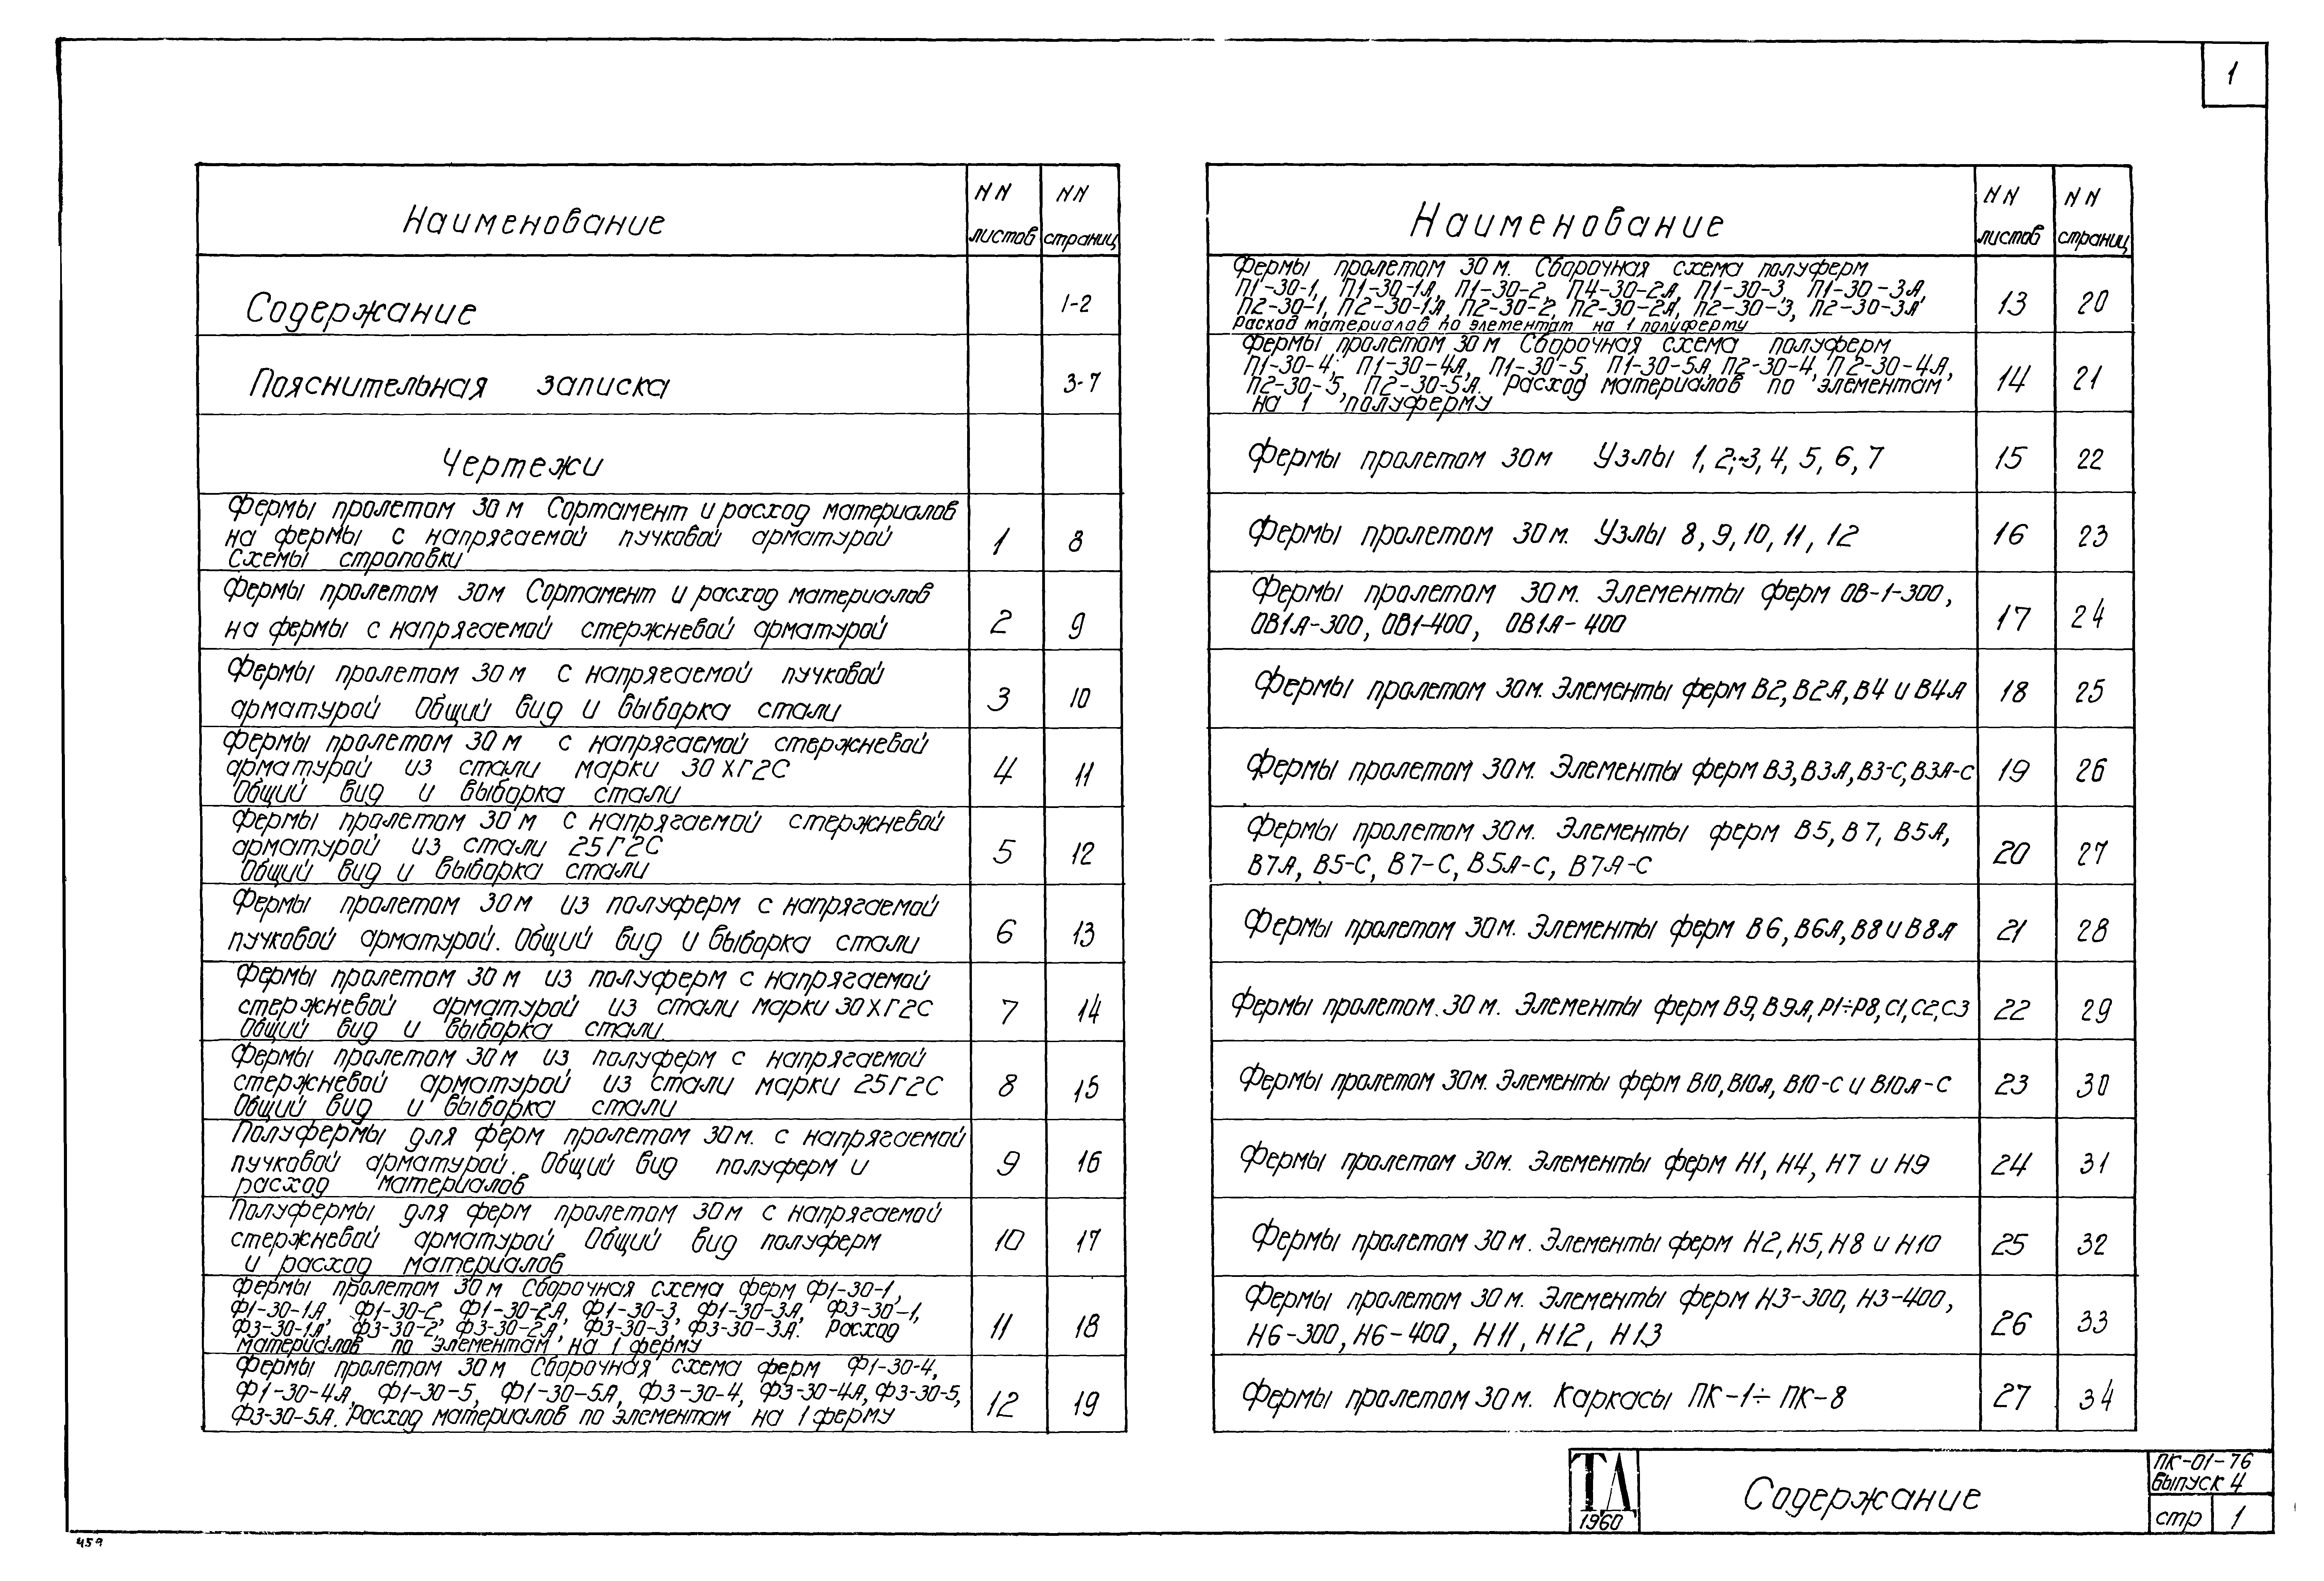 1
Наименование
NN листов
NN страниц
Содержание 1-2
Пояснительная записка 3-7
Чертежи
Фермы пролетом 30 м Сортамент и расход материалов
на фермы с напрягаемой пучковой арматурой
Схемы строповки
1 8
Фермы пролетом 30м Сортамент и расход материалов
на фермы с напрягаемой стержневой арматурой
2 9
Фермы пролетом 30 м с напрягаемой пучковой
арматурой Общий вид и выборка стали
3 10
Фермы пролетом 30 м с напрягаемой стержневой
арматурой из стали марки 30ХГ2С
Общий вид и выборка стали
4 11
Фермы пролетом 30 м с напрягаемой стержневой
арматурой из стали 25Г2С
Общий вид и выборка стали
5 12
Фермы пролетом 30 м из полуферм с напрягаемой
пучковой арматурой. Общий вид и выборка стали
6 13
Фермы пролетом 30 м из полуферм с напрягаемой
стержневой арматурой из стали марки 30ХГ2С
Общий вид и выборка стали.
7 14
Фермы пролетом 30 м из полуферм с напрягаемой
стержневой арматурой из стали марки 25Г2С
Общий вид и выборка стали
8 15
Полуфермы для ферм пролетом 30м. с напрягаемой
пучковой арматурой. Общий вид полуферм и
расход материалов
9 16
Полуфермы для ферм пролетом 30м с напрягаемой
стержневой арматурой Общий вид полуферм
и расход материалов
10 17
Фермы пролетом 30 м Сборочная схема ферм Ф1-30-1,
Ф1-30-1А, Ф1-30-2, Ф1-30-2А, Ф1-30-3, Ф1-30-3А, Ф3-30-1,
Ф3-30-1А, Ф3-30-2, Ф3-30-2А, Ф3-30-3, Ф3-30-3А. Расход
материалов по элементам на 1 ферму
11 18
Фермы пролетом 30 м Сборочная схема ферм Ф1-30-4,
Ф1-30-4А, Ф1-30-5, Ф1-30-5А, Ф3-30-4, Ф3-30-4А, Ф3-30-5,
Ф3-30-5А. Расход материалов по элементам на 1 ферму
12 19
Наименование
NN листов
NN страниц
Фермы пролетом 30 м. Сборочная схема полуферм
П1-30-1, П1-30-1А, П1-30-2, П4-30-2А, П1-30-3, П1-30-3А,
П2-30-1, П2-30-1А, П2-30-2, П2-30-2А, П2-30-3, П2-30-3А
Расход материалов по элементам на 1 полуферму
13 20
Фермы пролетом 30 м Сборочная схема полуферм
П1-30-4, П1-30-4А, П1-30-5, П1-30-5А, П2-30-4, П2-30-4А,
П2-30-5, П2-30-5А. Расход материалов по элементам
на 1 полуферму
14 21
Фермы пролетом 30м Узлы 1, 2, 3, 4, 5, 6, 7
15 22
Фермы пролетом 30м. Узлы 8, 9, 10, 11, 12
16 23
Фермы пролетом 30м. Элементы ферм ОВ-1-300,
ОВ1А-300, ОВ1-400, ОВ1А-400
17 24
Фермы пролетом 30м. Элементы ферм В2, В2А, В4 и В4А
18 25
Фермы пролетом 30м. Элементы ферм В3, В3А, В3-С, В3А-С
19 26
Фермы пролетом 30м. Элементы ферм В5, В7, В5А,
В7А, В5-С, В7-С, В5А-С, В7А-С
20 27
Фермы пролетом 30м. Элементы ферм В6, В6А, В8 и В8А
21 28
Фермы пролетом 30 м. Элементы ферм В9, В9А, Р1÷Р8, С1, С2, С3
22 29
Фермы пролетом 30м. Элементы ферм В10, В10А, В10-С и В10А-С
23 30
Фермы пролетом 30м. Элементы ферм Н1, Н4, Н7 и Н9
24 31
Фермы пролетом 30м. Элементы ферм Н2, Н5, Н8 и Н10
25 32
Фермы пролетом 30м. Элементы ферм Н3-300, Н3-400,
Н6-300, Н6-400, Н11, Н12, Н13
26 33
Фермы пролетом 30м. Каркасы ПК-1÷ПК-8
27 34
ТД
1960
Содержание
ПК-01-76
Выпуск 4
стр 1
459